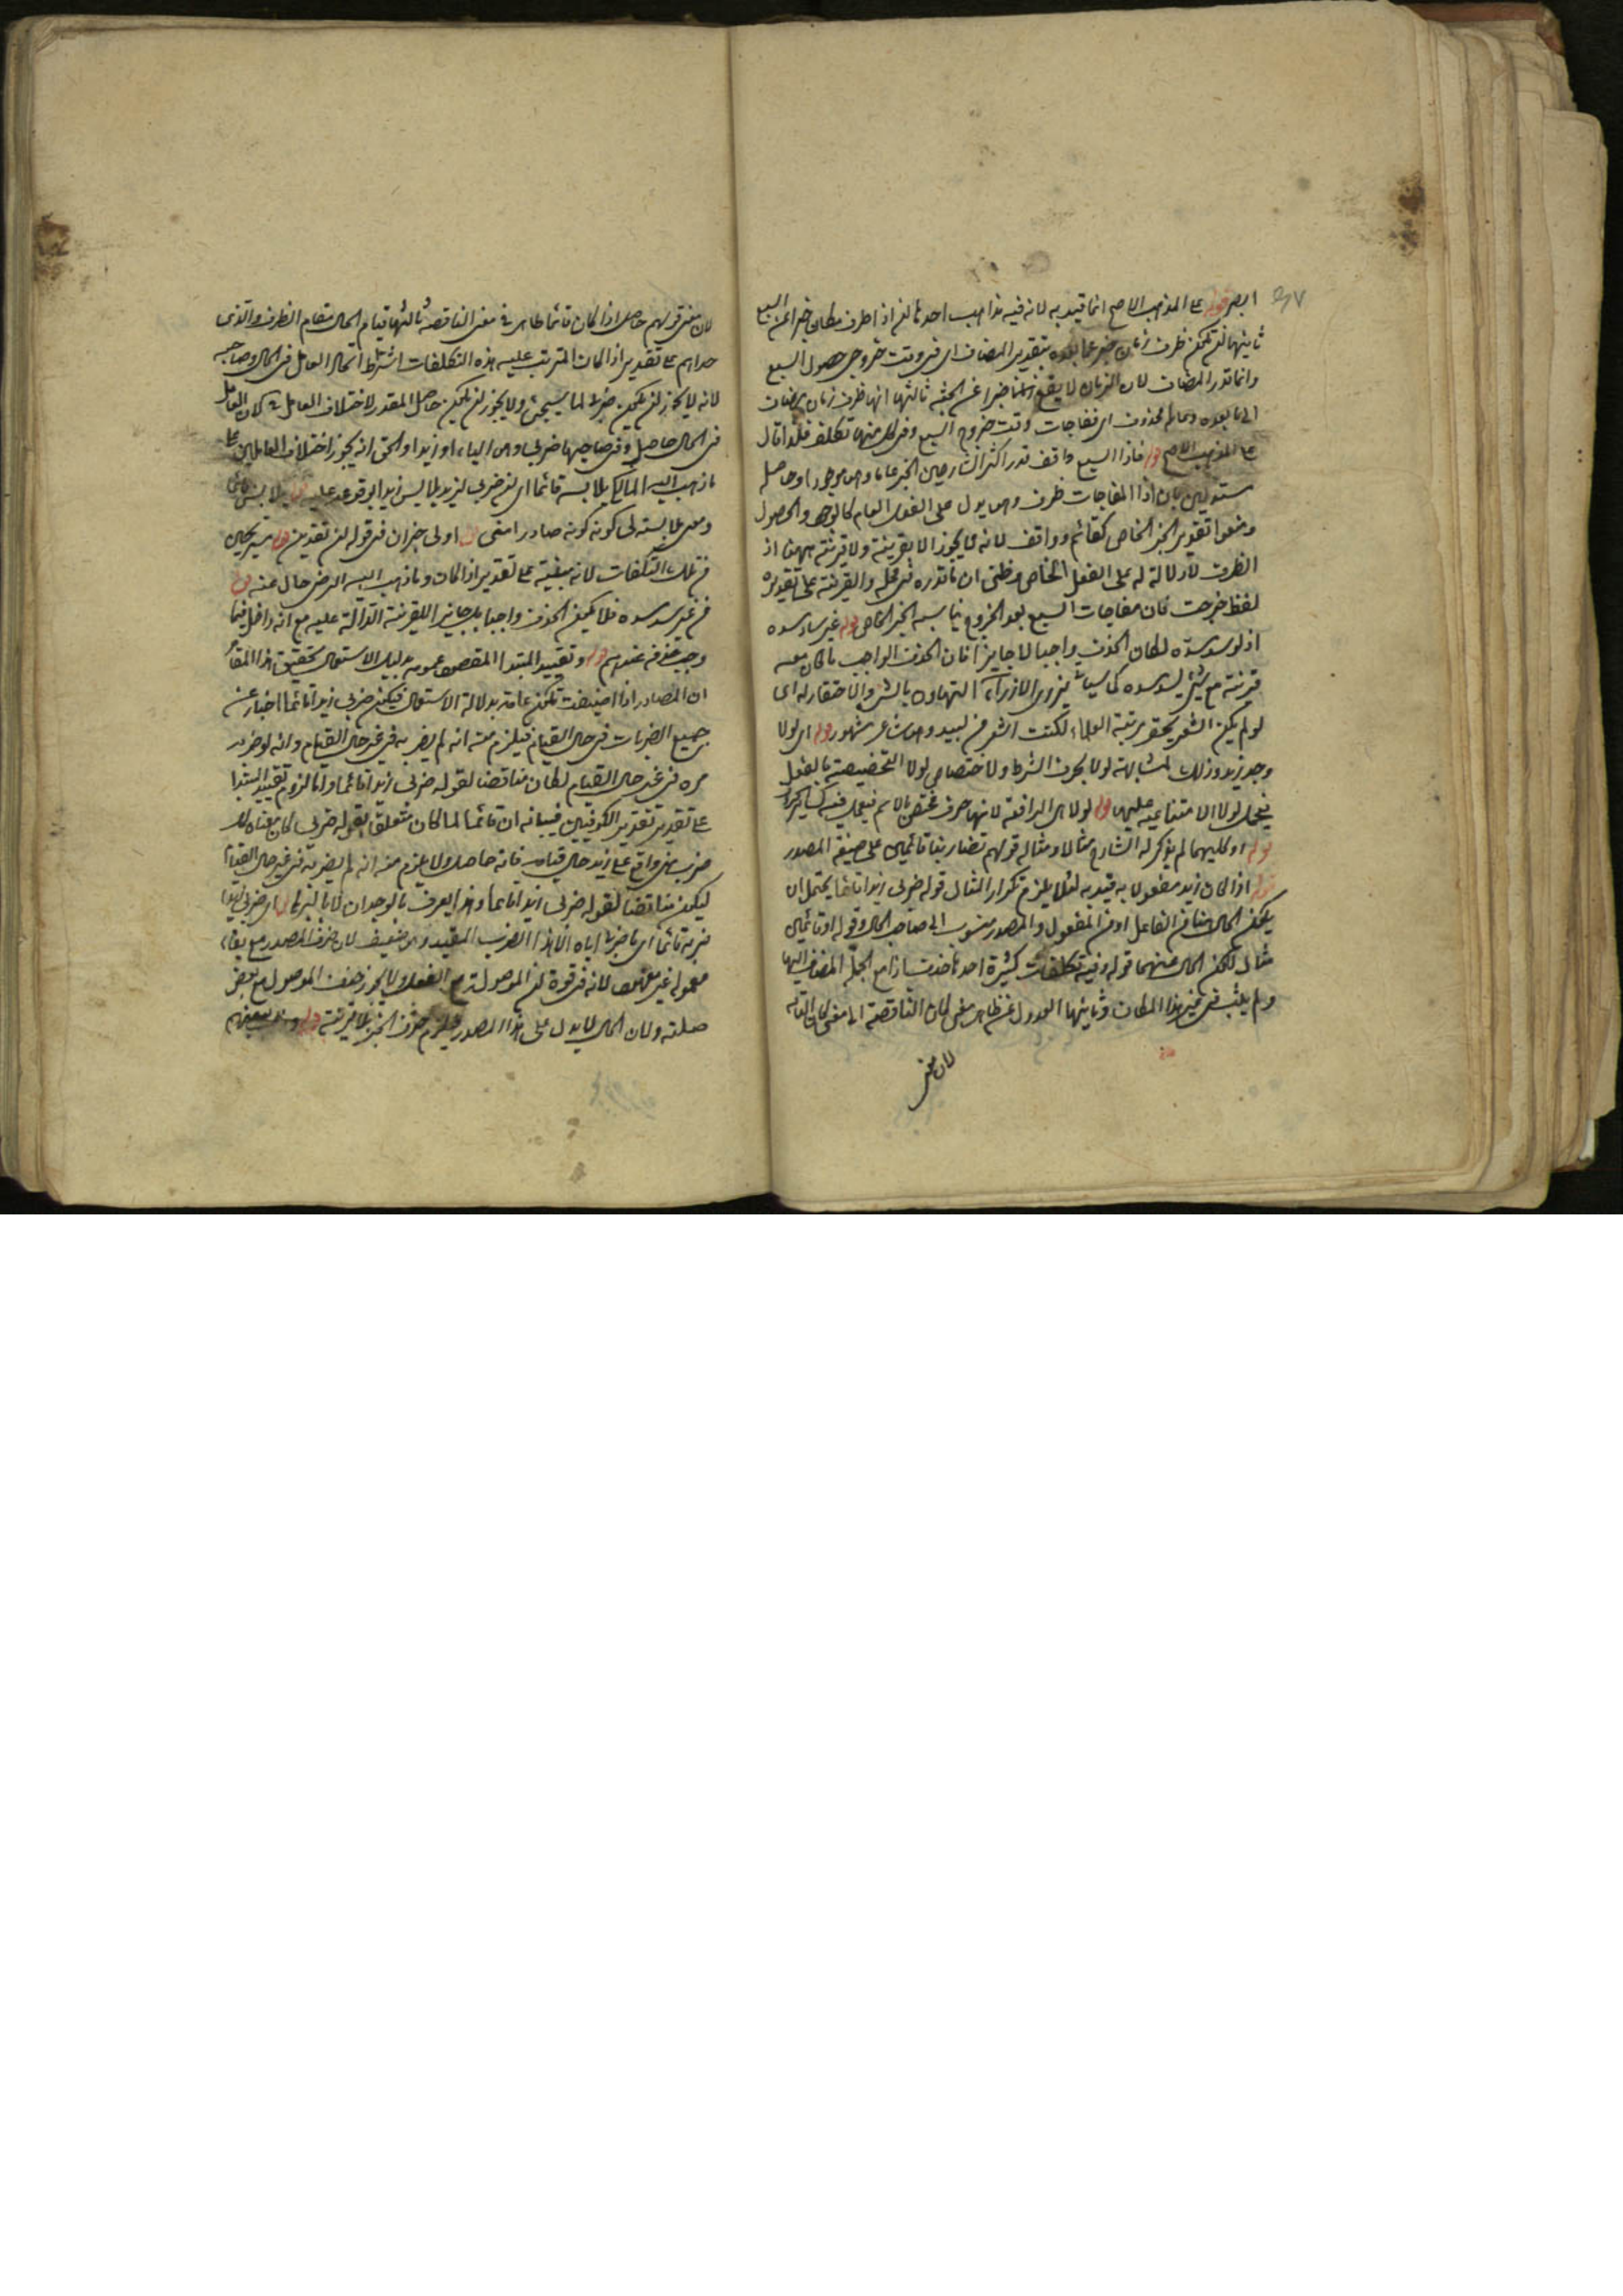 قوله على المذهب الاصح انما قيد به لانه فيه مذاهب احدها ان اذا ظرف مكان خبر اعن السبع
ثانيها ان يكون ظرف زمان خبر عما بعده بتقدير المضاف اى فى وقت خروجى حصول السبع
وانما قدر المضاف لان الزمان لا يقع خبرا عن الجثة ثالثها انها ظرف زمان مضاف
الى ما بعده وعامله محذوف اى ففاجات وقت خروج السبع وفى كل منها تكلف فلذا قال
على المذهب الاصح قوله فاذا السبع واقف قدر اكثر الشارحين الخبر عاما وهو موجود او حاصل
مستدلين بان اذا المفاجات ظرف وهو يدل على الفعل العام كالوجود والحصول
ومنعوا تقدير الخبر الخاص كقائم وواقف لانه لا يجوز الا بقرينة ولا قرينة ههنا اذ
الظرف لا دلالة له على الفعل الخاص وظنى ان ما قدره فى محله والقرينة على تقديره
لفظ خرجت فان مفاجات السبع بعد الخروج يناسبه الخبر الخاص قوله غير ساد مسده
اذ لو سد مسده لكان الحذف واجبا لا جايزا فان الحذف الواجب ما كان معه
قرينة مع شئ يسد مسده كما سيأتى يزرى الازراء التهاون بالشئ والاحتقار له اى
لو لم يكن الشعر يحقر مرتبة العلماء لكنت اشعر من لبيد وهو شاعر مشهور قوله اى لولا
وجد زيد وذلك لمشابهة لولا بحرف الشرط ولاختصاص لولا التحضيضية بالفعل
فيحمل لولا الامتناعية عليها قوله لولا هى الرافعة لانها حرف مختص بالاسم فيعمل فيه كسائر الحروف
قوله او كليهما لم يذكر له الشارح مثالا ومثاله قولهم تضاربنا قائمين على صيغة المصدر
قوله اذا كان زيد مفعولا به قيد به لئلا يلزم تكرار المثال قوله ضربى زيدا قائما يحتمل ان
يكون الحال هنا من الفاعل او من المفعول والمصدر منسوب الى صاحب الحال وقوله او قائمين
مثال لكون الحال منهما قوله وفيه تكلفات كثيرة احدها حذف اذا مع الجملة المضاف اليها
ولم يثبت فى غير هذا المكان وثانيها العدول عن ظاهر معنى كان الناقصة الى معنى كان التامة
لان معنى
لان معنى قولهم حاصل اذا كان قائما ظاهر فى معنى الناقصة ثالثها قيام الحال مقام الظرف والذى
حداهم على تقدير اذا كان المترتب عليه هذه التكلفات اشتراط اتحاد العامل فى الحال وصاحبه
لانه لا يجوز ان يكون ضربى لما سيجئ ولا يجوز ان يكون حاصل المقدر لاختلاف العامل لان العامل
فى الحال حاصل وفى صاحبها ضربى وهو الياء او زيدا والحق انه يجوز اختلاف العاملين على
ما ذهب اليه المالكى يلابسه قائما
فى تلك التكلفات لانه مبنية على تقدير اذا كان وما ذهب اليه الرضى خال عنه
من غير سد مسده فلا يكون الحذف واجبا بل جايزا للقرينة الدالة عليه مع انه داخل فيما
وجب حذفه عندهم قوله وتقييد المبتدا المقصود عمومه بدليل الاستعمال تحقيق هذا المقام
ان المصادر اذا اضيفت تكون عامة بدلالة الاستعمال فيكون ضربى زيدا قائما اخبار عن
جميع الضربات فى حال القيام فيلزم منه انه لم يضربه فى غير حال القيام وانه لو ضربه
مرة فى غير حال القيام لكان مناقضا لقوله ضربى زيدا قائما واما لزوم تقييد المبتدا
على تقدير تقدير الكوفيين فبيانه ان قائما لما كان متعلق بقوله ضربى كان معناه ان
ضربى واقع على زيد حال قيامه فانه حاصل ولا يلزم منه انه لم يضربه فى غير حال القيام
ليكون مناقضا لقوله ضربى زيدا قائما وهذا يعرف بالوجدان لا بالبرهان
ضربه قائما اى ما ضربى اياه الا هذا الضرب المقيد وهو ضعيف لان حذف المصدر مع بقاء
معموله غير معهود لانه فى قوة ان الموصول مع الفعل ولا يجوز حذف الموصول مع بعض
صلته ولان الحال لا يدل على هذا المصدر فيلزم حذف الخبر بلا قرينة